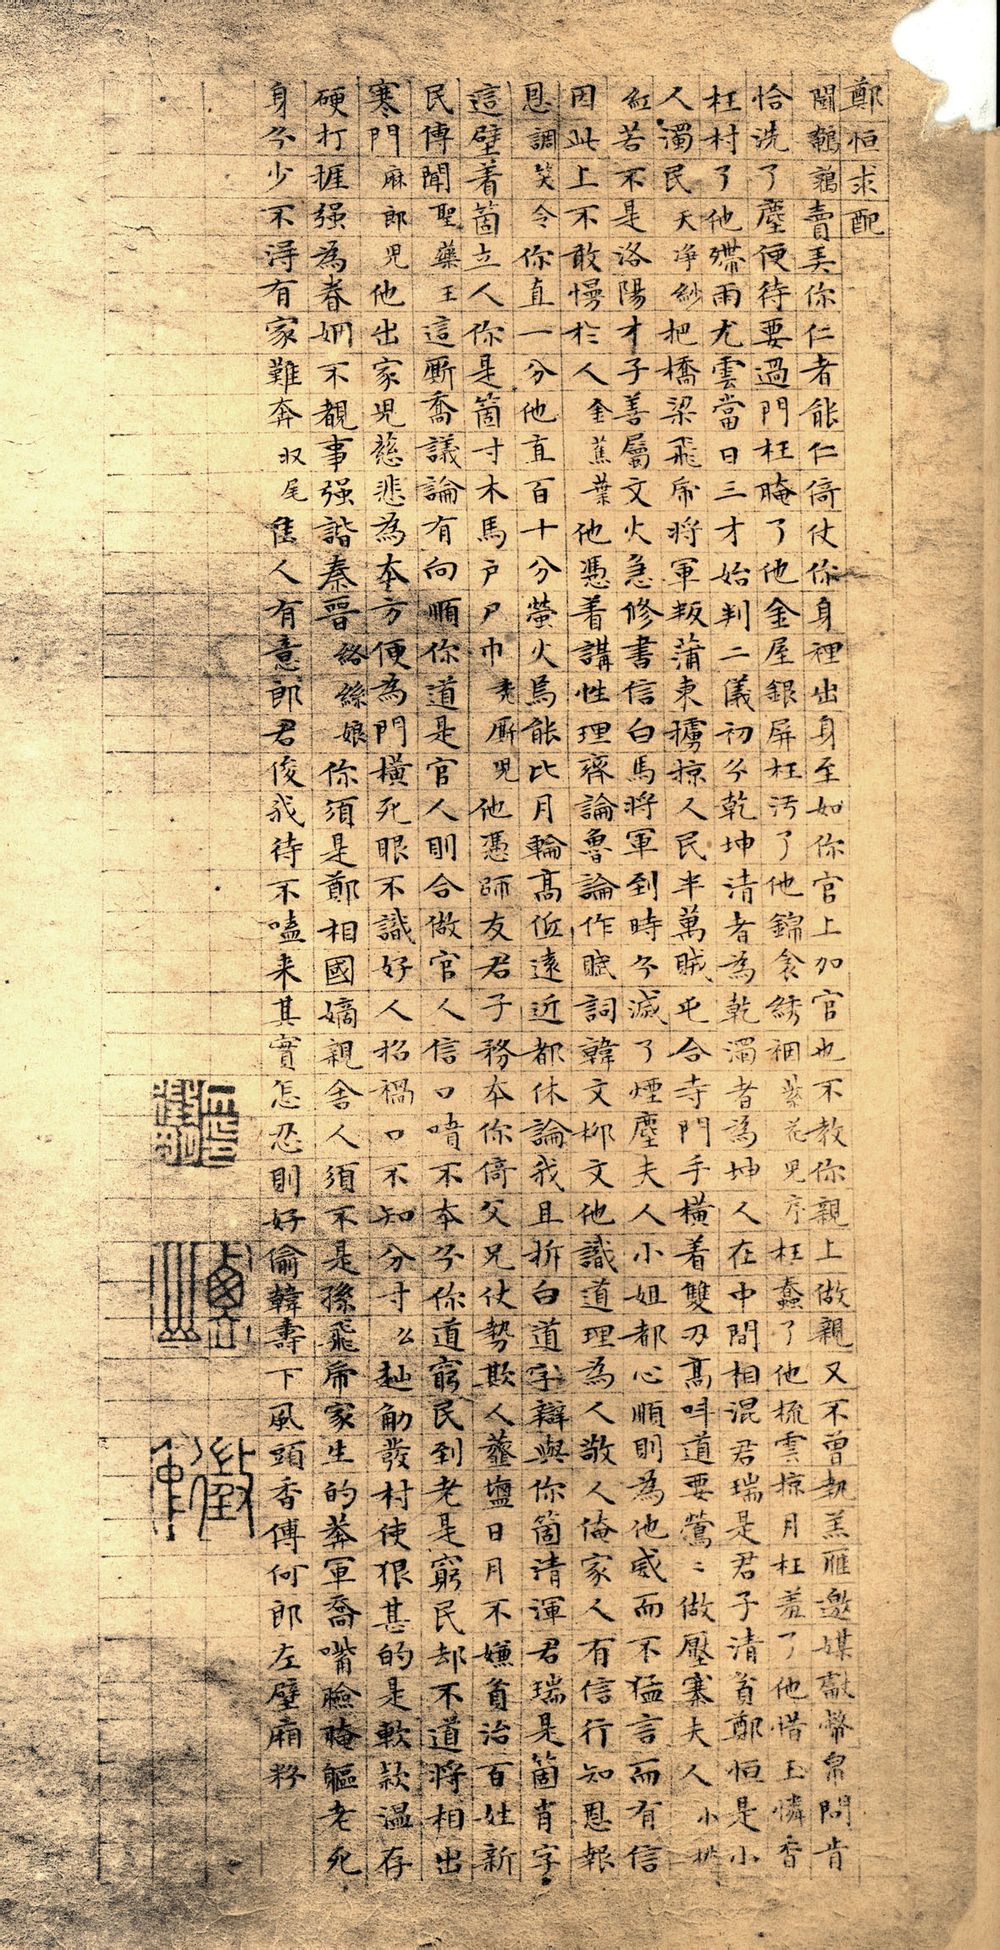 鄭恒求配
鬪鵪鶉賣弄你仁者能仁倚仗你身裡出身至如你官上加官也不教你親上做親又不曾執羔雁邀媒獻幣帛問肯
恰洗了塵便待要過門枉腌了他金屋銀屏枉污了他錦衾綉裀紫花児序枉蠢了他梳雲掠月枉羞了他惜玉憐香
枉村了他殢雨尤雲當日三才始判二儀初分乾坤清者為乾濁者為坤人在中間相混君瑞是君子清貧鄭恒是小
人濁民天净紗把橋梁飛虎將軍叛蒲東擄掠人民半萬賊屯合寺門手橫着雙刃高呌道要鶯〻做壓寨夫人小桃
紅若不是洛陽才子善屬文火急修書信白馬將軍到時分滅了煙塵夫人小姐都心順則為他威而不猛言而有信
因此上不敢慢於人金蕉葉他憑着講性理齊論魯論作賦詞韓文柳文他識道理為人敬人俺家人有信行知恩報
恩調笑令你直一分他直百十分螢火焉能比月輪高低遠近都休論我且拆白道字辯與你箇清渾君瑞是箇肖字
這壁着箇立人你是箇寸木馬户尸巾禿厮児他憑師友君子務本你倚父兄仗勢欺人虀鹽日月不嫌貧治百姓新
民傳聞聖藥王這厮喬議論有向順你道是官人則合做官人信口噴不本分你道窮民到老是窮民却不道將相出
寒門麻郎児他出家児慈悲為本方便為門橫死眼不識好人招禍口不知分寸么赸觔發村使狠甚的是軟款溫存
硬打捱强為眷姻不覩事强諧秦晉絡絲娘你須是鄭相國嫡親舍人須不是孫飛虎家生的莽軍喬嘴臉腌軀老死
身分少不淂有家難奔収尾隹人有意郎君俊我待不嗑来其實怎忍則好偷韓壽下風頭香傅何郎左壁廂粉